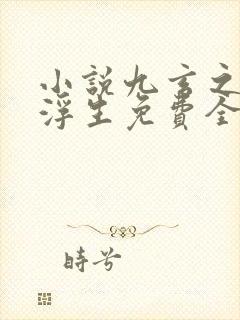 小説九言之
浮生免費全
時兮